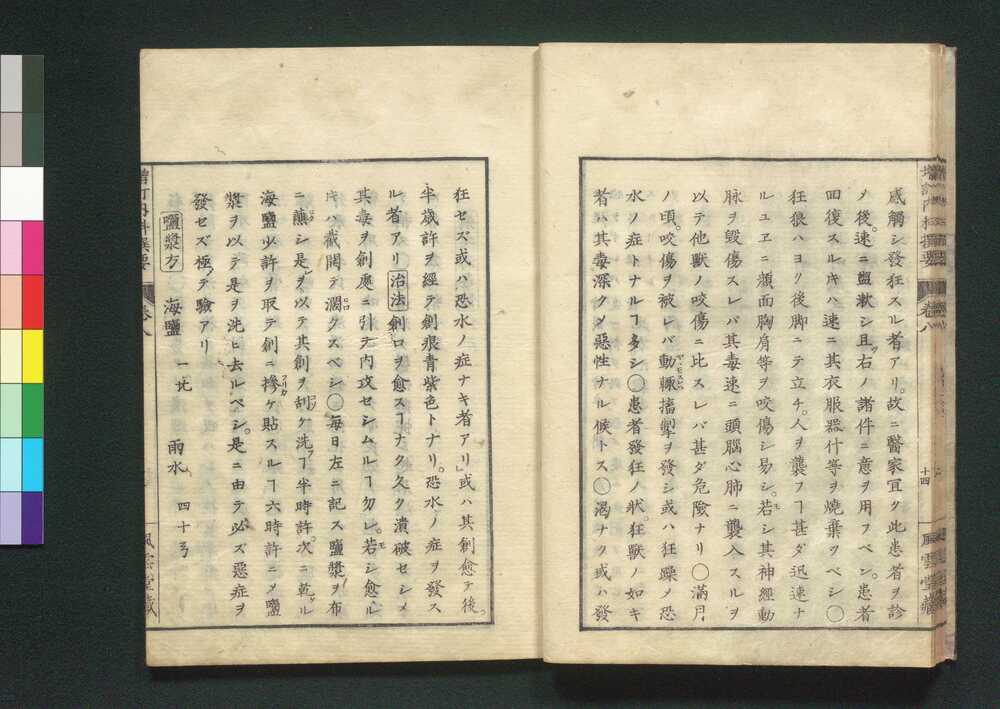 感觸シ發狂スル者アリ。故ニ醫家宜ク此患者ヲ診
メ後。速ニ盥漱シ且ツ右ノ諸件ニ意ヲ用フベシ。患者
回復スルキハ速ニ其衣服器什等ヲ燒棄ツベシ〇
狂狼ハヨク後脚ニテ立チ。人ヲ襲フヿ甚ダ迅速ナ
ルユヱニ顔面胸肩等ヲ咬傷シ易シ。若シ其神經動
脉ヲ毀傷スレバ其毒速ニ頭腦心肺ニ襲入スルヲ
以テ他獸ノ咬傷ニ比スレバ甚ダ危險ナリ〇滿月
ノ頃。咬傷ヲ被レバ動輙搐掣ヲ發シ或ハ狂躁メ恐
水ノ症トナルヿ多シ〇患者發狂ノ狀。狂獸ノ如キ
者ハ其毒深クメ惡性ナル候トス〇渴ナク或ハ發
十四
風雲堂藏
狂セズ或ハ恐水ノ症ナキ者アリ」或ハ其創愈テ後。
半歳許ヲ經テ創痕青紫色トナリ。恐水ノ症ヲ發ス
ル者アリ 治法 創口ヲ愈スヿナク久ク潰破セシメ
其毒ヲ創處ニ引テ内攻セシムルヿ勿レ。若シ愈ル
キハ截開テ濶クスベシ〇毎日左ニ記ス鹽漿ヲ布
ニ蘸シ是ヲ以テ其創ヲ刮ケ洗フヿ半時許。次ニ乾ケル
海鹽少許ヲ取テ創ニ摻ケ貼スルヿ六時許ニメ鹽
漿ヲ以テ是ヲ洗ヒ去ルベシ。是ニ由テ必ズ惡症ヲ
發セズ極テ驗アリ
鹽漿方 海鹽 一 雨水 四十
增訂内科撰要 卷八
風雲堂藏